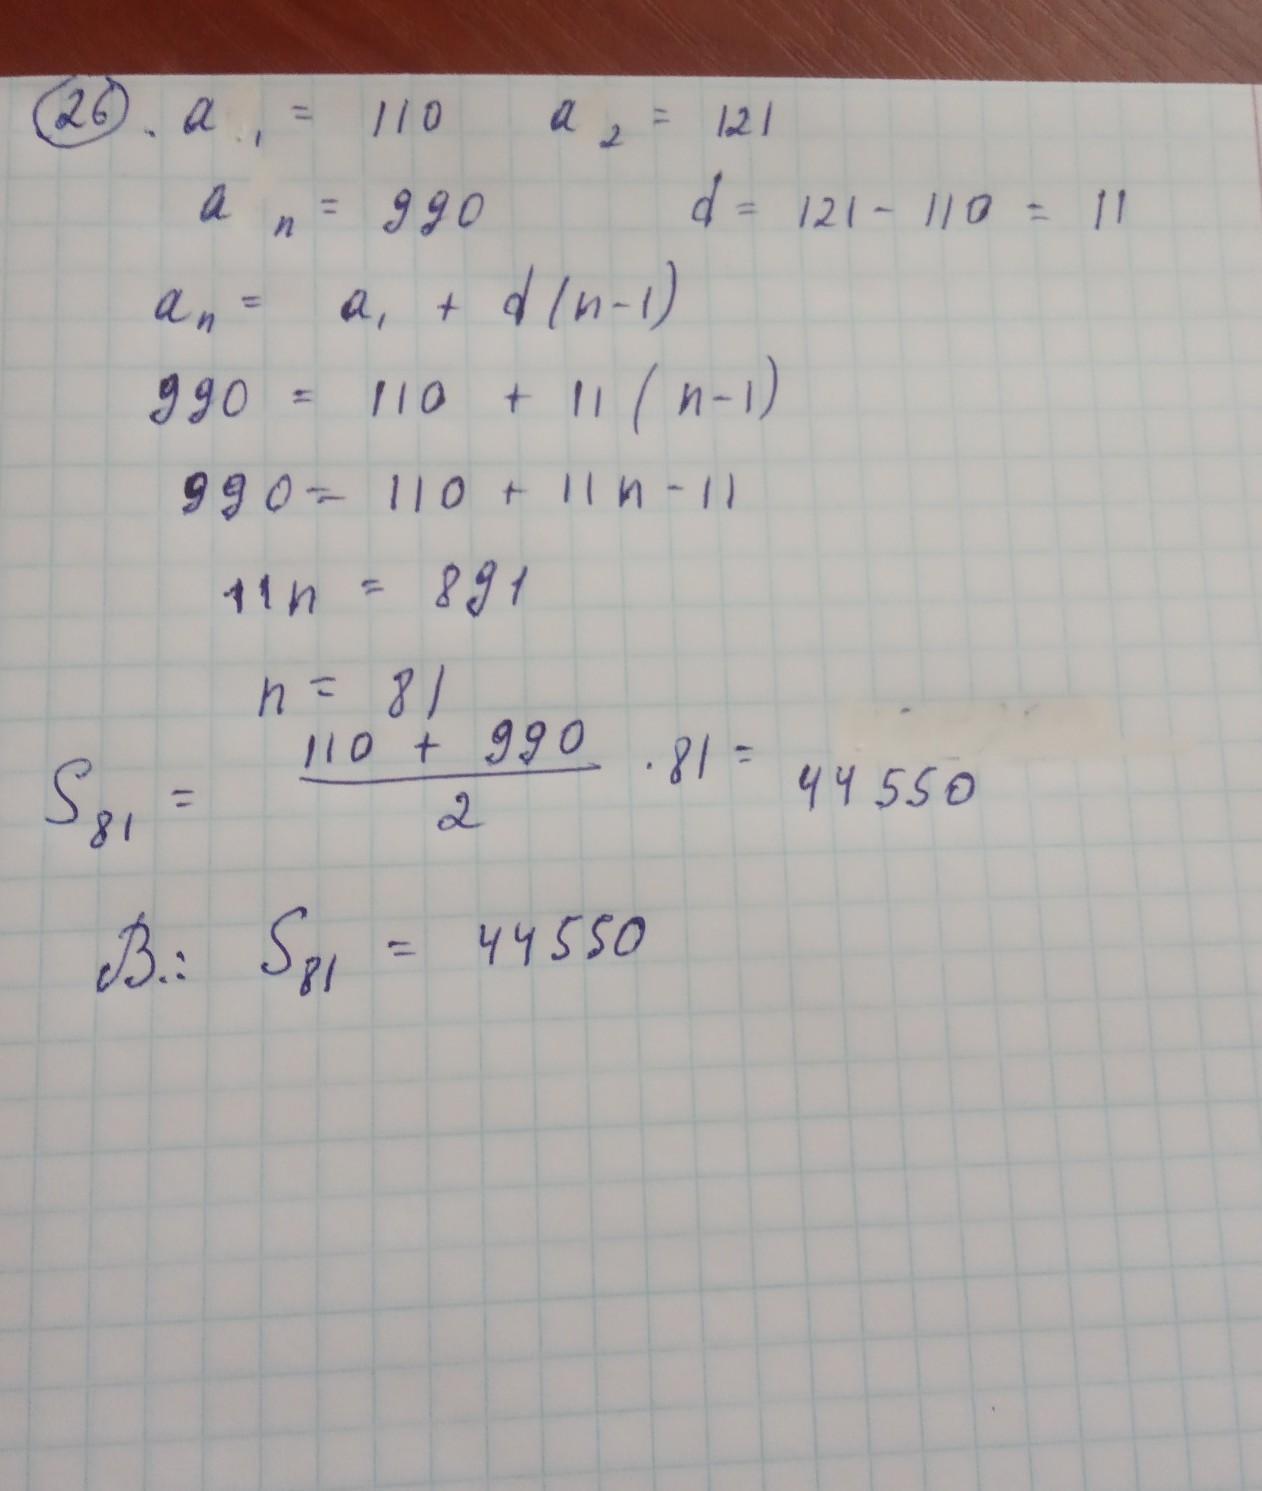 26. a₁ = 110 a₂ = 121
aₙ = 990 d = 121 - 110 = 11
aₙ = a₁ + d(n-1)
990 = 110 + 11(n-1)
990 = 110 + 11n - 11
11n = 891
n = 81
S₈₁ = (110 + 990)/2 · 81 = 44550
В.: S₈₁ = 44550